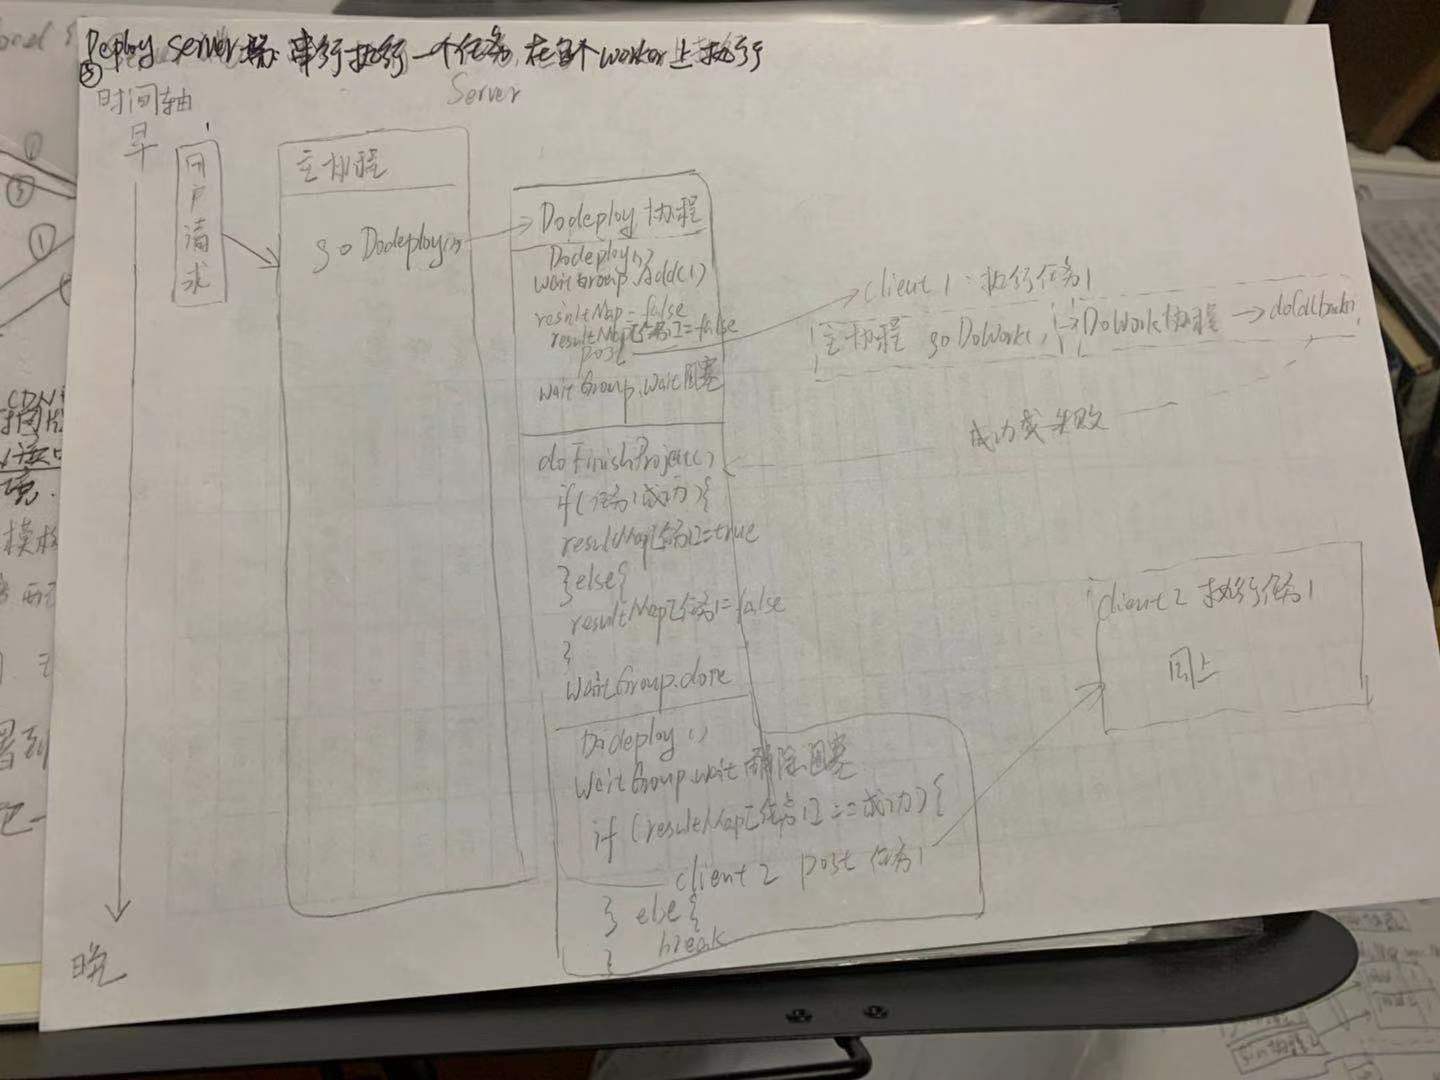 Deploy server 端 串行执行一个任务, 在多个worker上执行
⑤
时间轴
早
Server
用户请求
主协程
go Dodeploy()
Dodeploy协程
Dodeploy()
waitGroup.add(1)
resultMap=false
resultMap[任务1]=false
post
waitGroup.wait阻塞
client1 执行任务1
主协程 go DoWork()
DoWork协程
成功或失败
doFinishProject()
if(任务1成功){
resultMap[任务1]=true
}else{
resultMap[任务1]=false
}
WaitGroup.done
client2 执行任务1
同上
Dodeploy()
WaitGroup.wait 解除阻塞
if(resultMap[任务1]==成功){
client2 post 任务1
} else {
break
}
晚
CDN
模板